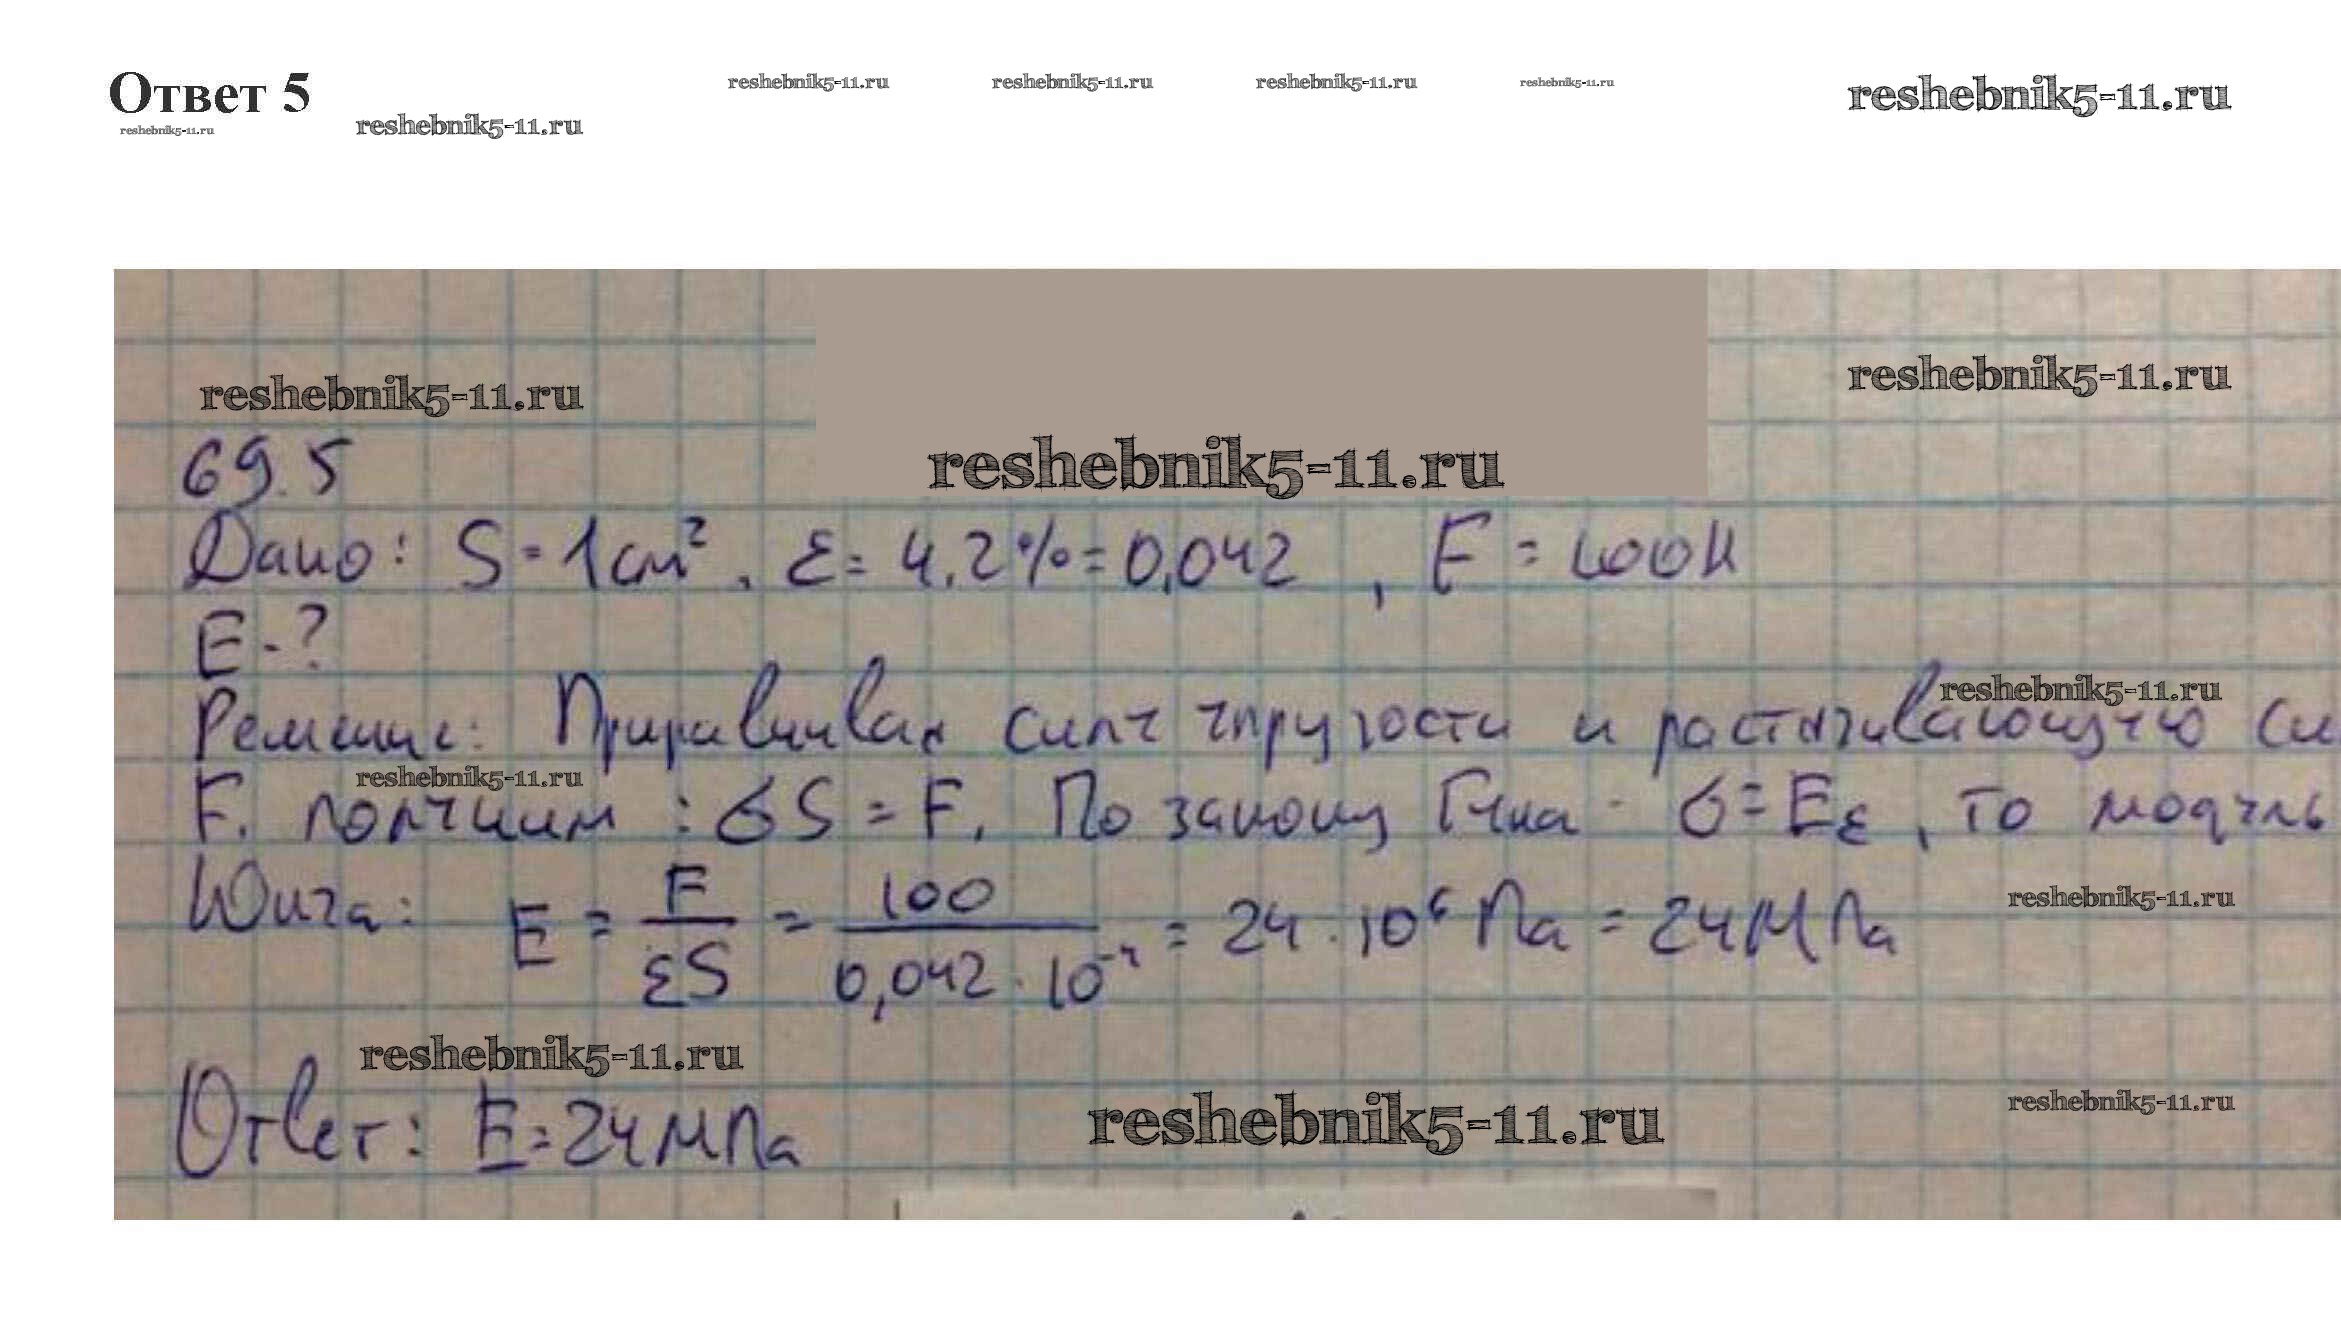 Ответ 5
reshebnik5-11.ru reshebnik5-11.ru reshebnik5-11.ru reshebnik5-11.ru reshebnik5-11.ru
reshebnik5-11.ru reshebnik5-11.ru
reshebnik5-11.ru reshebnik5-11.ru
reshebnik5-11.ru
69.5
Дано: S = 1 см², ε = 4.2% = 0,042, F = 100 Н
E - ?
reshebnik5-11.ru
Решение: Приравнивая силу упругости и растягивающую си
reshebnik5-11.ru
F. получим: σS = F. По закону Гука σ = Eε, то модуль
Юнга: E = F/εS = 100/0,042 · 10⁻⁴ = 24 · 10⁶ Па = 24 МПа
reshebnik5-11.ru
reshebnik5-11.ru
reshebnik5-11.ru reshebnik5-11.ru
Ответ: E = 24 МПа